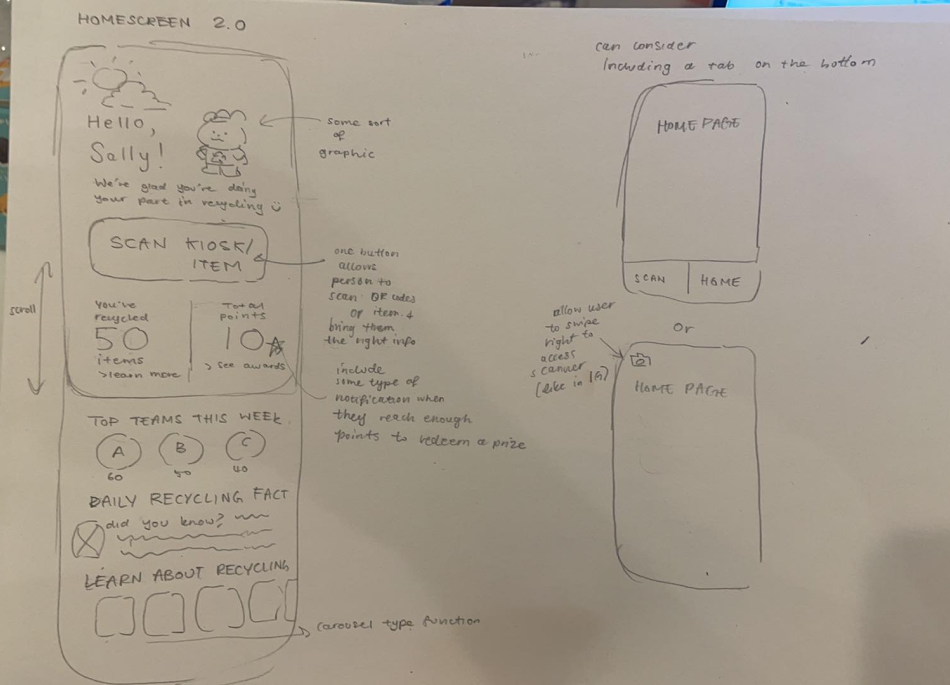 HOMESCREEN 2.0
Hello,
Sally!
We're glad you're doing
your part in recycling
SCAN KIOSK/
ITEM
You've
recycled
50
items
>learn more
Total
points
10
> see awards
TOP TEAMS THIS WEEK
A
B
C
60
50
40
DAILY RECYCLING FACT
did you know?
LEARN ABOUT RECYCLING
scroll
some sort
of
graphic
one button
allows
person to
scan QR codes
or item &
bring them
the right info
include
some type of
notification when
they reach enough
points to redeem a prize
carousel type function
can consider
Including a tab on the bottom
HOME PAGE
SCAN
HOME
Or
allow user
to swipe
right to
access
scanner
(like in IG)
HOME PAGE